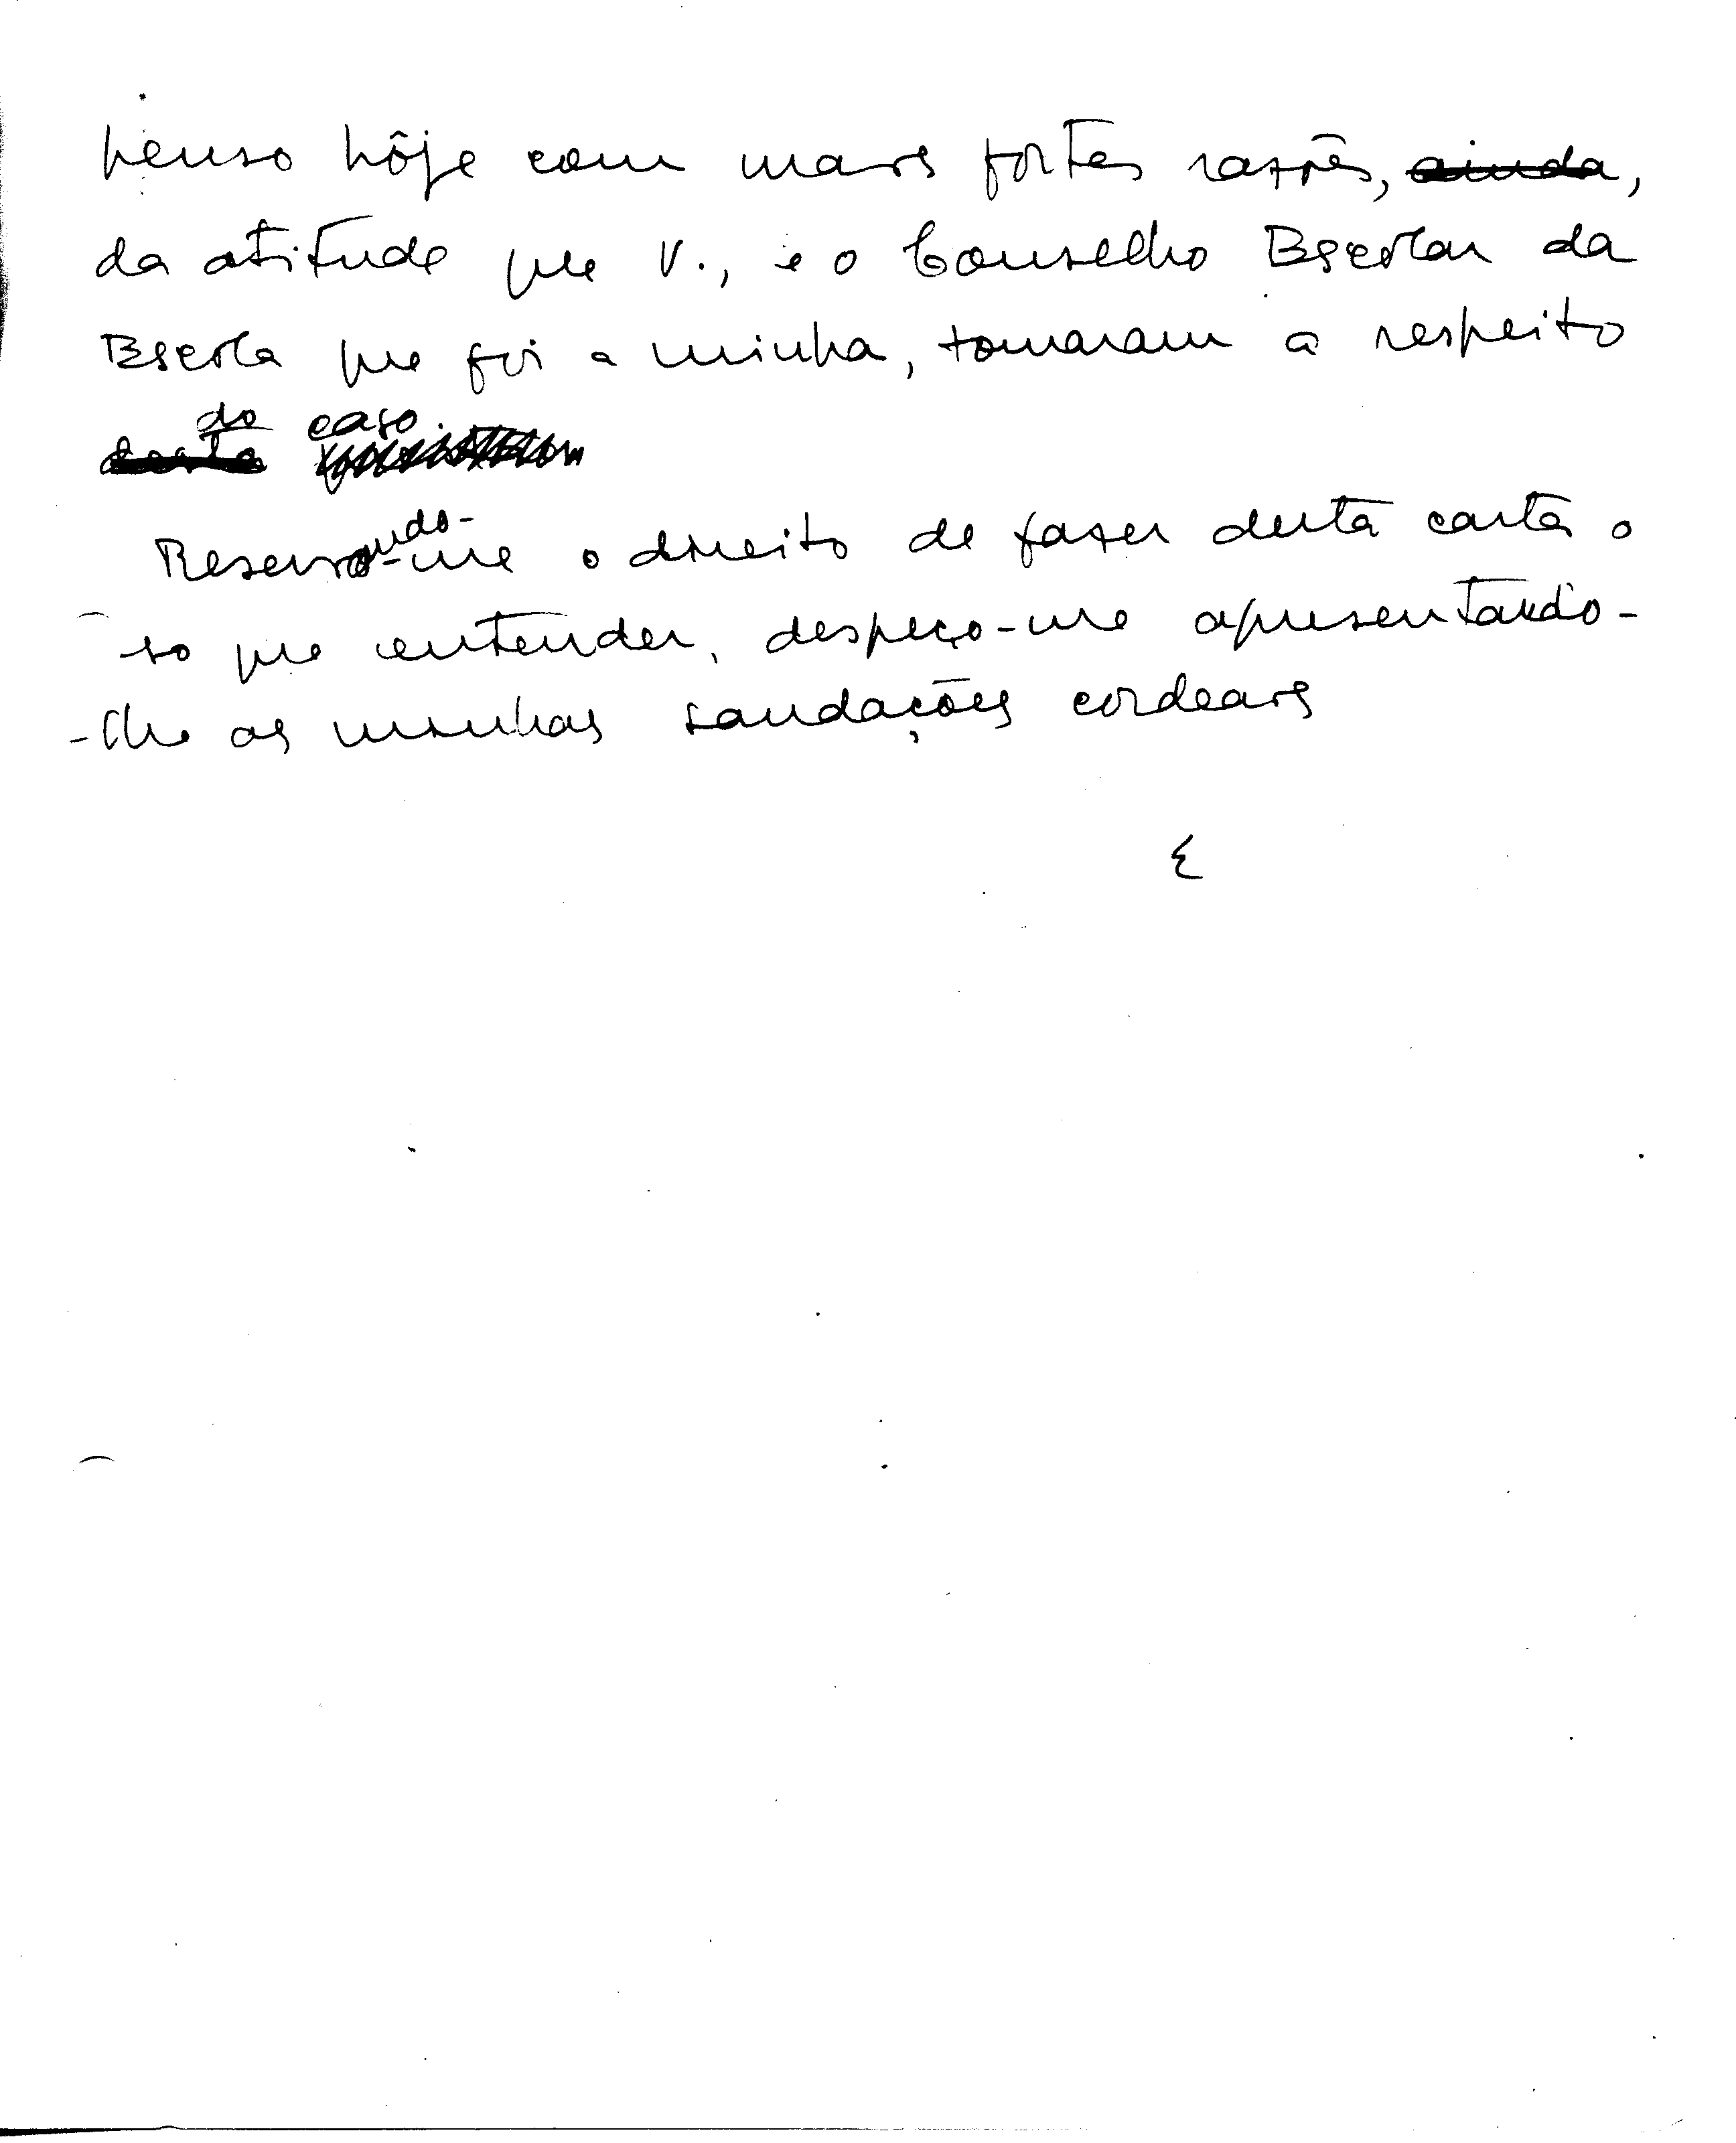 penso hôje com mais fortes razões, ainda,
da atitude que V., e o Conselho Escolar da
Escola que foi a minha, tomaram a respeito
do caso.
desta
Reservando-me o direito de fazer desta carta o
so que entender, despeço-me apresentando-
-lhe as minhas saudações cordeais